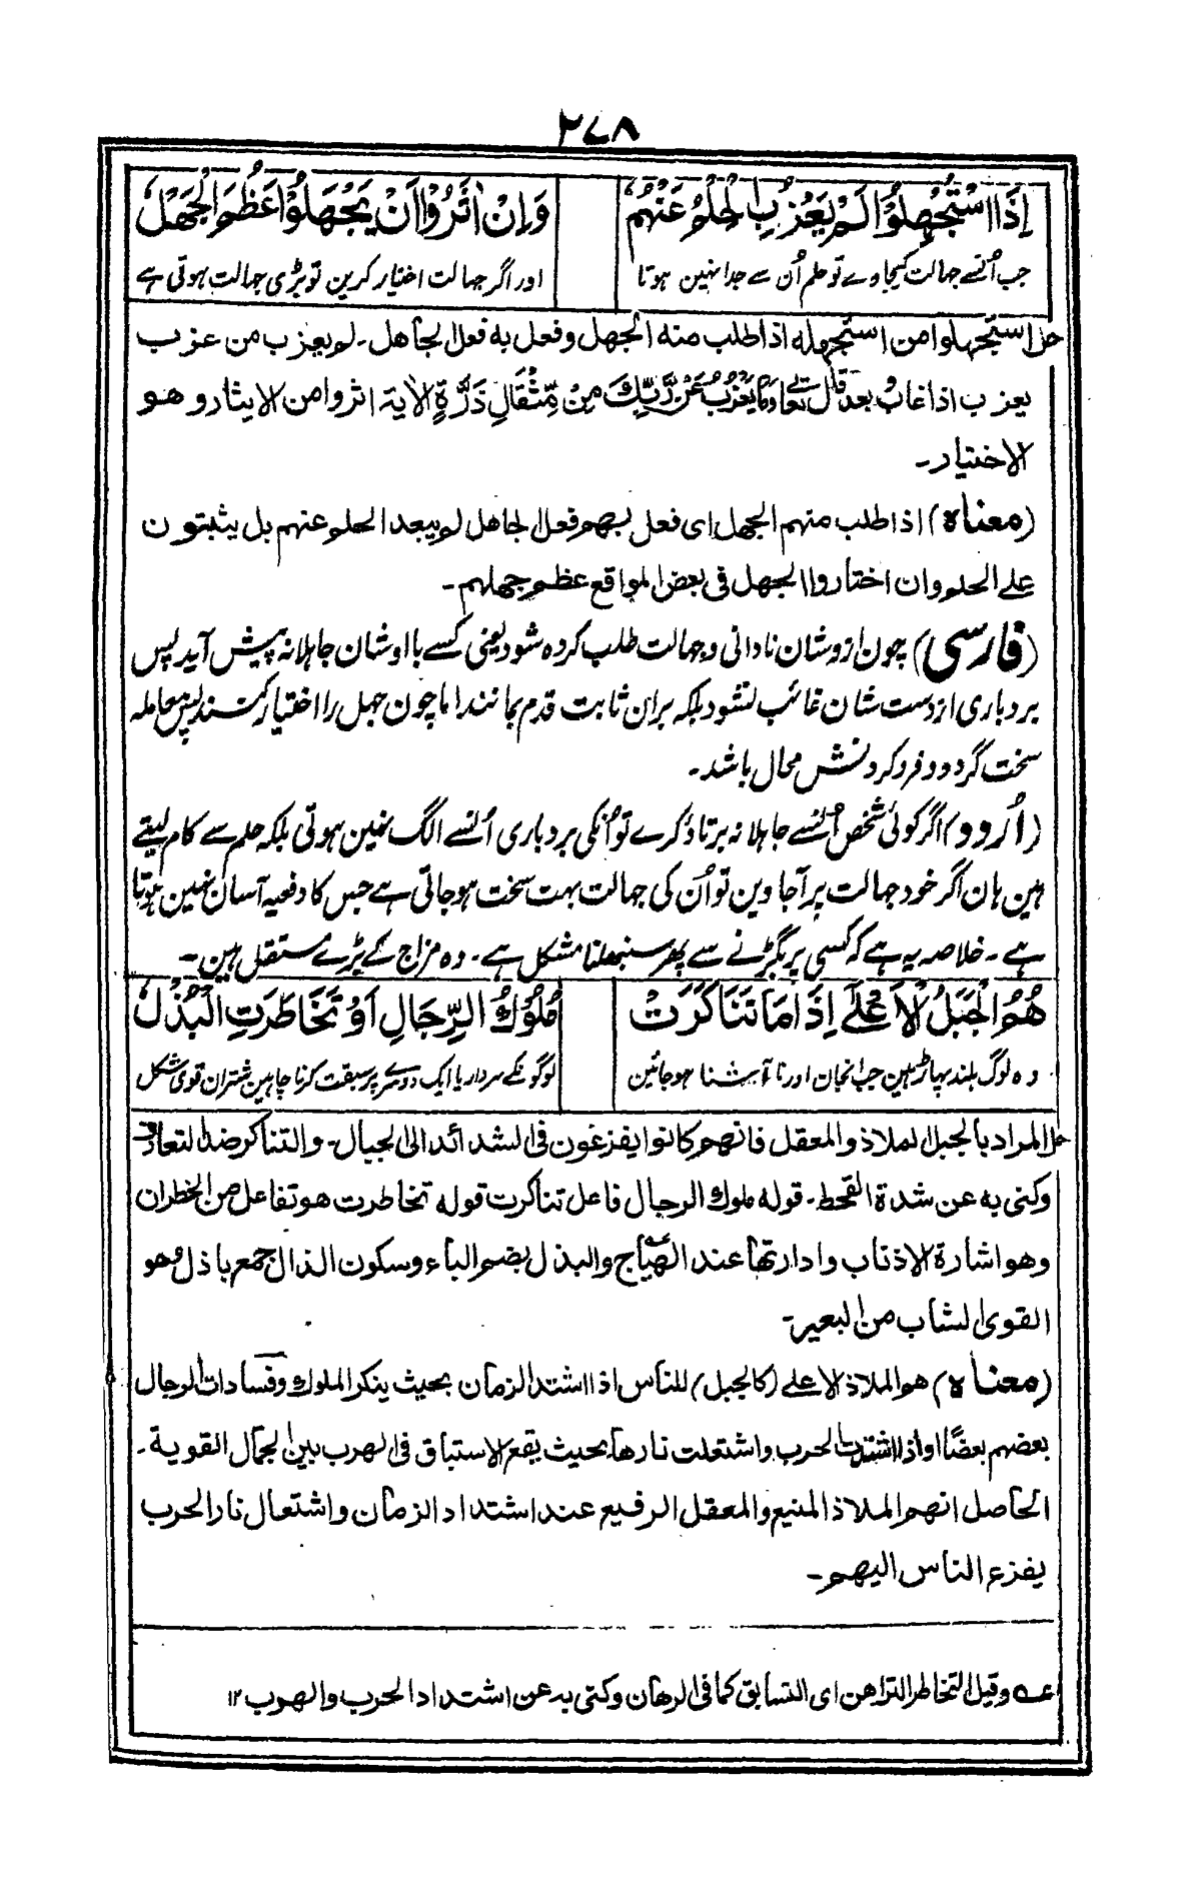 ۲۷۸
إِذَا اسْتُجْهِلُوْا لَمْ يَعْزُبِ الْحِلْمُ عَنْهُمُ وَإِنْ اٰثَرُوْا أَنْ يَجْهَلُوْا عَظُمَ الْجَهْلُ
جب اُنسے جہالت کیجاوے تو حلم اُن سے جدا نہین ہوتا اور اگر جہالت اختیار کرین تو بڑی جہالت ہوتی ہے
حل استجهلوا من استجهله اذا طلب منه الجهل وفعل به فعل الجاهل۔ لم يعزب من عزب
يعزب اذا غاب بعد قال تعالى وَمَا يَعْزُبُ عَنْ رَّبِّكَ مِنْ مِّثْقَالِ ذَرَّةٍ الاٰية اثروا من الايثار وهو
الاختيار۔
(معناه) اذا طلب منهم الجهل اى فعل بهم فعل الجاهل لم يبعد الحلم عنهم بل يثبتون
على الحلم وان اختاروا الجهل فى بعض المواقع عظم جهلهم۔
(فارسی) چون ازوشان نادانی و جہالت طلب کردہ شود یعنی کسے با اوشان جاہلانہ پیش آید پس
بردباری از دست شان غائب نشود بلکہ بران ثابت قدم بمانند اما چون جہل را اختیار کنند پس معاملہ
سخت گردد و فرو کردنش محال باشد۔
(اُردو) اگر کوئی شخص اُنسے جاہلانہ برتاؤ کرے تو اُنکی بردباری اُنسے الگ نہین ہوتی بلکہ حلم سے کام لیتے
ہین ہان اگر خود جہالت پر آجاوین تو اُن کی جہالت بہت سخت ہوجاتی ہے جس کا دفعیہ آسان نہین ہوتا
ہے۔ خلاصہ یہ ہے کہ کسی پر بگڑنے سے پھر سنبھلنا مشکل ہے۔ وہ مزاج کے بڑے مستقل ہین۔
هُمُ الْجَبَلُ الْأَعْلٰى إِذَا مَا تَنَاكَرَتْ مُلُوْكُ الرِّجَالِ أَوْ تَخَاطَرَتِ الْبُذْلُ
وہ لوگ بلند پہاڑ ہین جب انجان اور نا آشنا ہوجائین لوگونکے سردار یا ایک دوسرے پر سبقت کرنا چاہین شتران قوی شکل
حل المراد بالجبل الملاذ والمعقل فانهم كانوا يفزعون فى الشدائد الى الجبال۔ والتناكر ضد التعارف
وكنى به عن شدة القحط۔ قوله ملوك الرجال فاعل تناكرت قوله تخاطرت هو تفاعل من الخطران
وهو اشارة الاذناب وادارتها عند الهياج عہ والبذل بضم الباء وسكون الذال جمع باذل وهو
القوى الشاب من البعير۔
(معناه) هو الملاذ الاعلى (كالجبل) للناس اذا اشتد الزمان بحيث ينكر الملوك وسادات الرجال
بعضهم بعضًا او اذا اشتدت الحرب واشتعلت نارها بحيث يقع الاستباق فى الهرب بين الجمال القوية۔
الحاصل انهم الملاذ المنيع والمعقل الرفيع عند اشتداد الزمان واشتعال نار الحرب
يفزع الناس اليهم۔
عہ وقيل التخاطر التراهن اى التسابق كما فى الرهان وكنى به عن اشتداد الحرب والهرب ۱۲